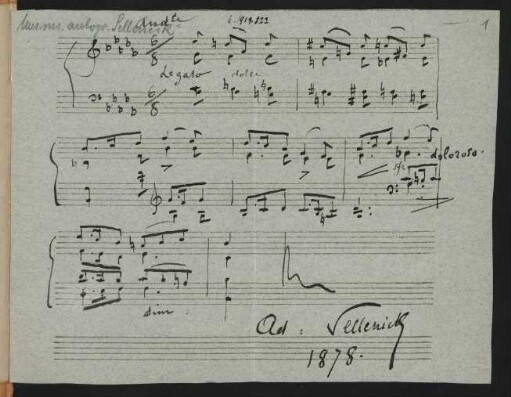 Mus. ms. autogr. Sellenick
And.te
1
6/8
6/8
Legato
dolce
doloroso.
dim.
Ad: Sellenick
1878.